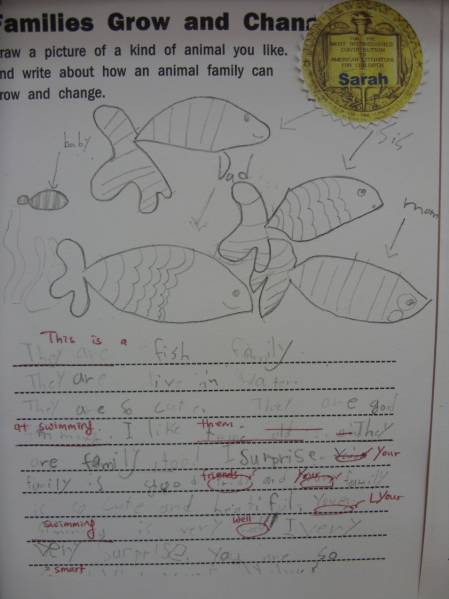 Families Grow and Chan
raw a picture of a kind of animal you like.
nd write about how an animal family can
row and change.
FOR THE
MOST DISTINGUISHED
CONTRIBUTION
TO
AMERICAN LITERATURE
FOR CHILDREN
Sarah
baby
Dad
Sis
mom
This is a
They are fish family.
They are live in water.
They are so cute. They are good
at swimming. I like them. They
are family too! I Surprise. Your
family is good friends and Your family
is so cute and beautiful. Your
swimming is very well I very
very surprise, you are so
smart